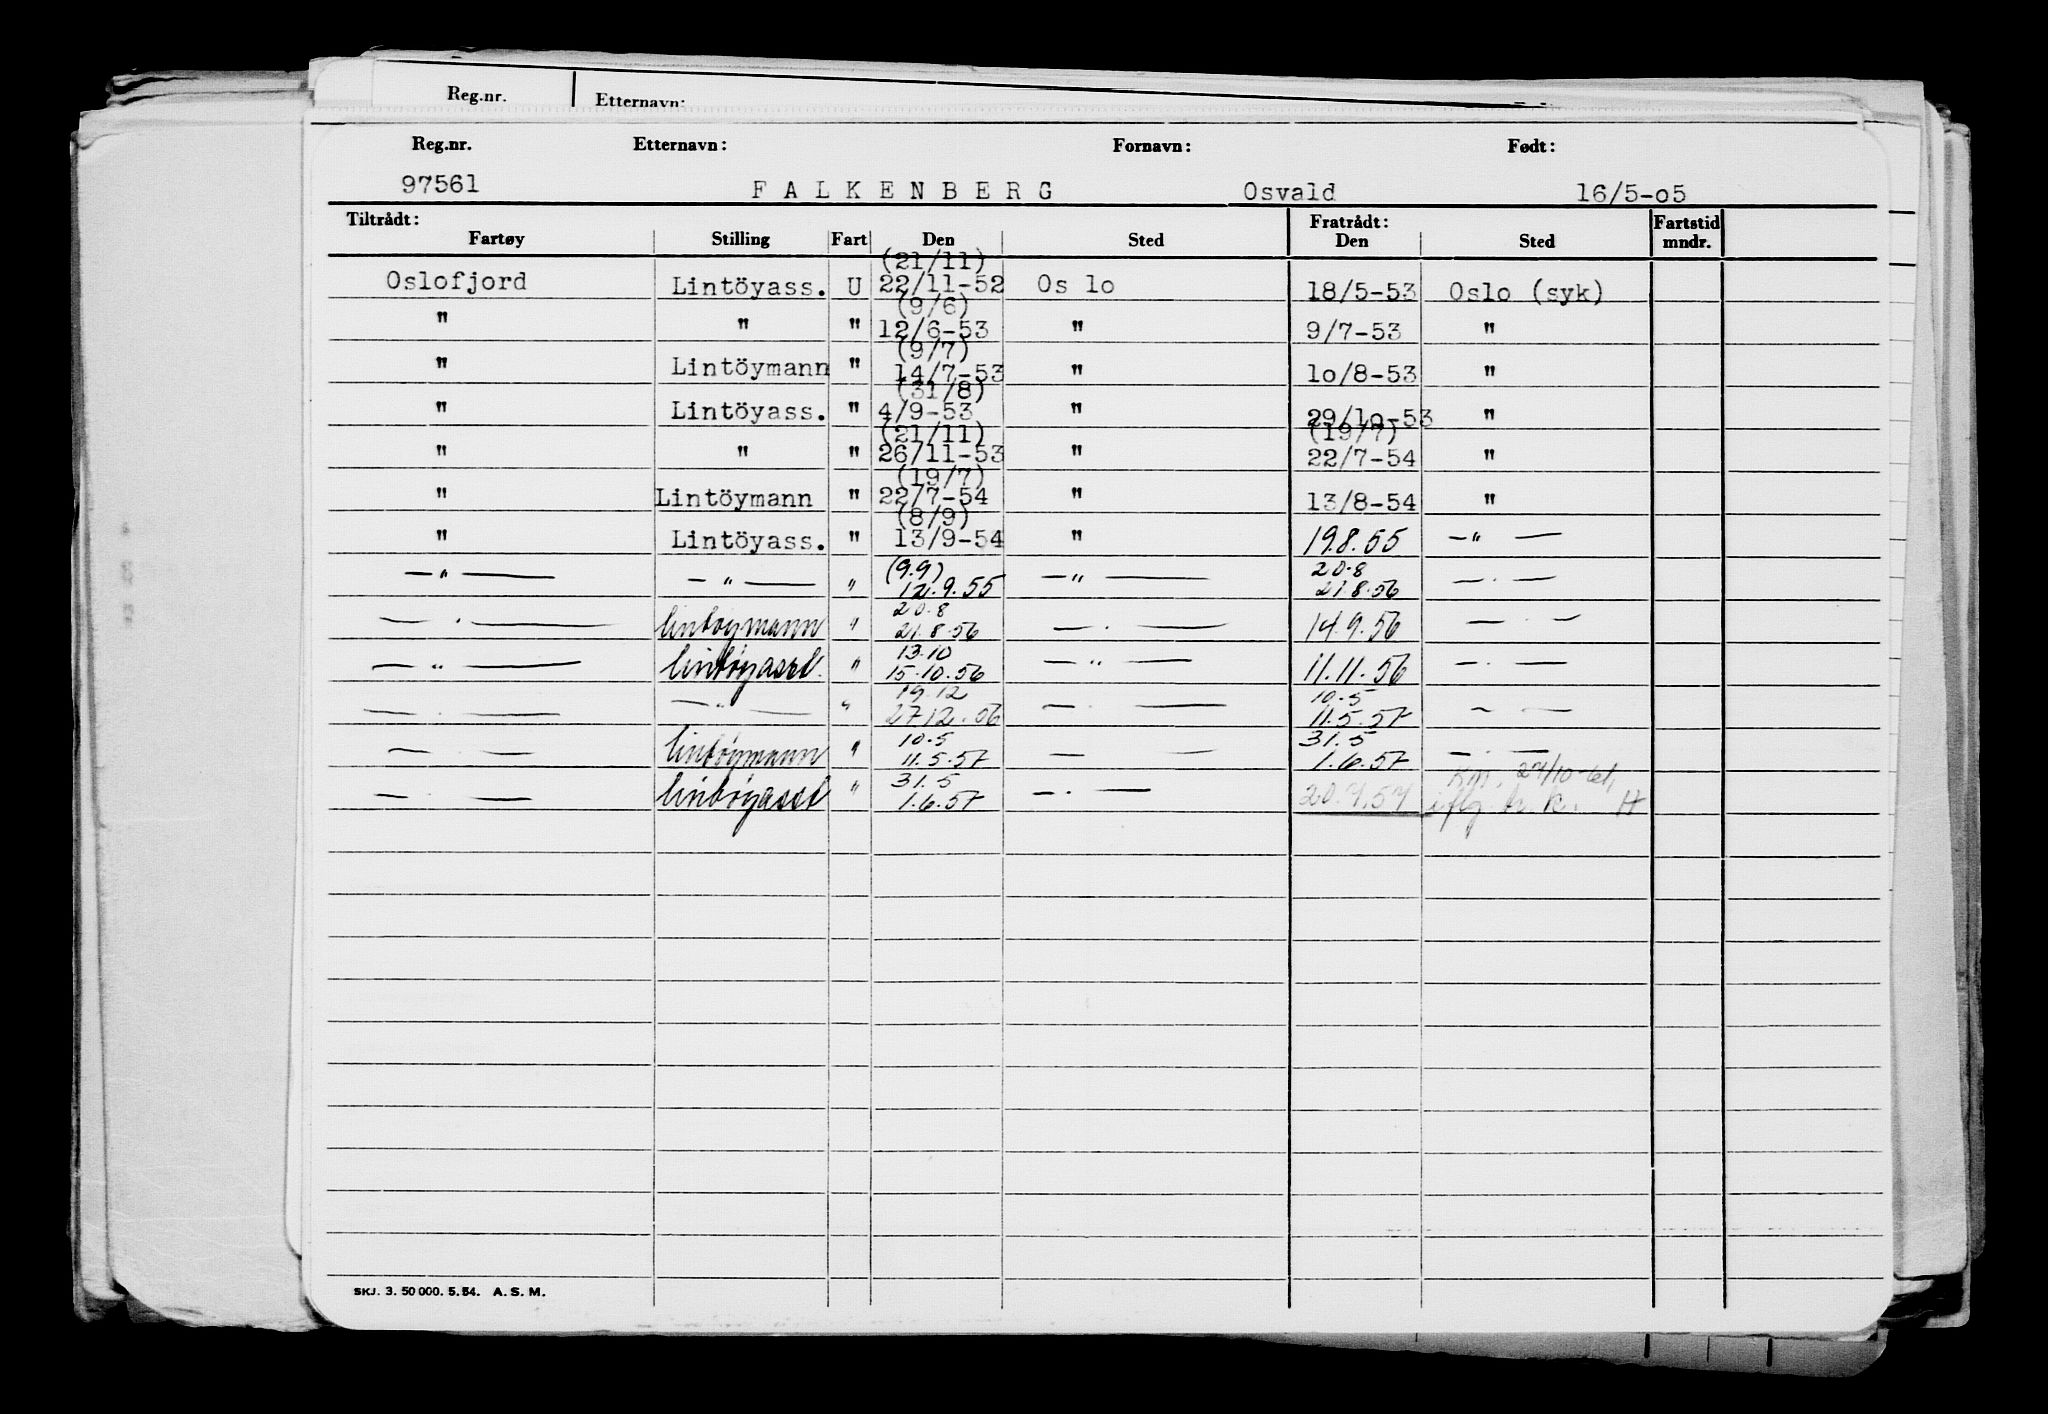 Reg.nr. Etternavn:
Reg.nr. Etternavn: Fornavn: Født:
97561 FALKENBERG Osvald 16/5-o5
Tiltrådt: Fratrådt: Fartstid
Fartøy Stilling Fart Den Sted Den Sted mndr.
(21/11)
Oslofjord Lintöyass. U 22/11-52 Os lo 18/5-53 Oslo (syk)
(9/6)
" " " 12/6-53 " 9/7-53 "
(9/7)
" Lintöymann " 14/7-53 " 1o/8-53 "
(31/8)
" Lintöyass. " 4/9-53 " 29/1o-53 "
(21/11) (19/7)
" " " 26/11-53 " 22/7-54 "
(19/7)
" Lintöymann " 22/7-54 " 13/8-54 "
(8/9)
" Lintöyass. " 13/9-54 " 19.8.55 —"—
(9.9) 20.8
—"— —"— " 12.9.55 —"— 21.8.56 —.—
20.8
—.— lintøymann " 21.8.56 —.— 14.9.56 —.—
13.10
—"— lintøyasst. " 15.10.56 —"— 11.11.56 —.—
19.12 10.5
—.— —"— " 27.12.56 —.— 11.5.57 —.—
10.5 31.5
—.— lintøymann " 11.5.57 — — 1.6.57 —.—
31.5 27/10-61,
—.— lintøyasst " 1.6.57 —.— 20.7.57 iflg. h.k. H
SKJ. 3. 50 000. 5. 54. A. S. M.